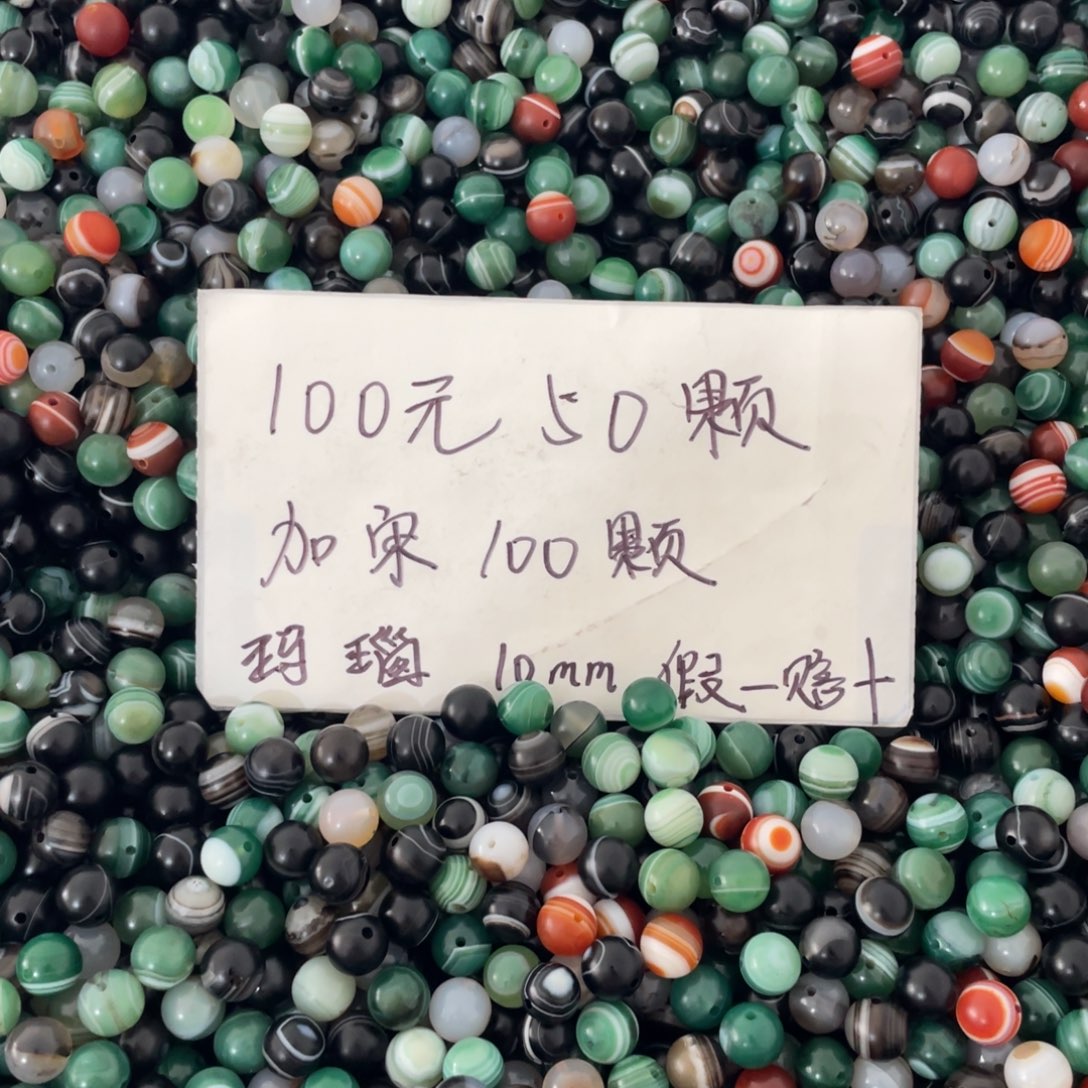 100元 50颗
加宋 100颗
玛瑙 10mm 假一赔十